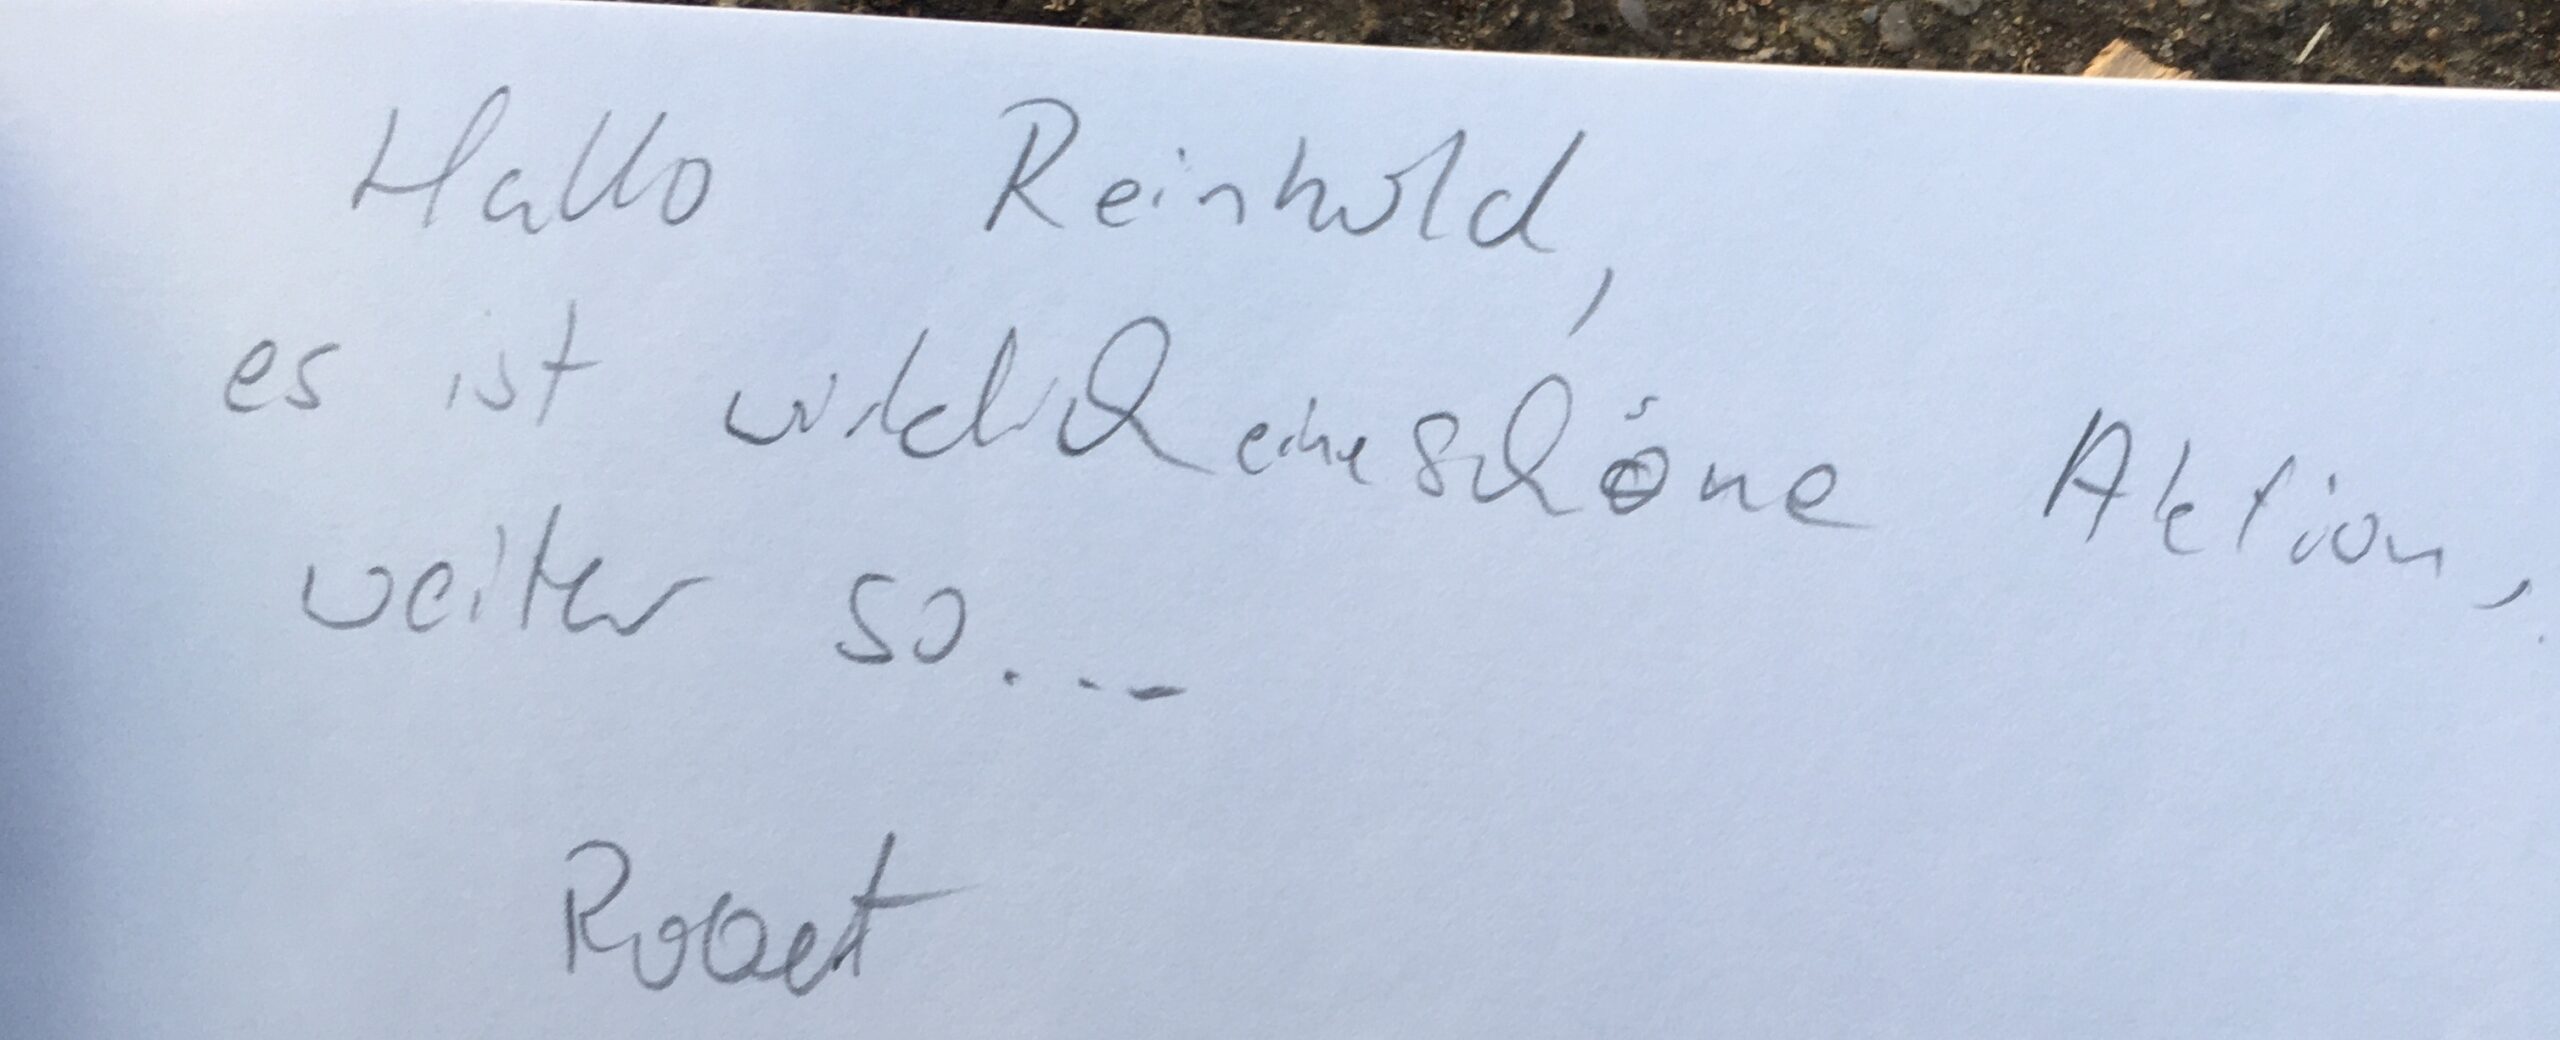 Hallo Reinhold,
es ist wirklich eine schöne Aktion,
weiter so...
Robert